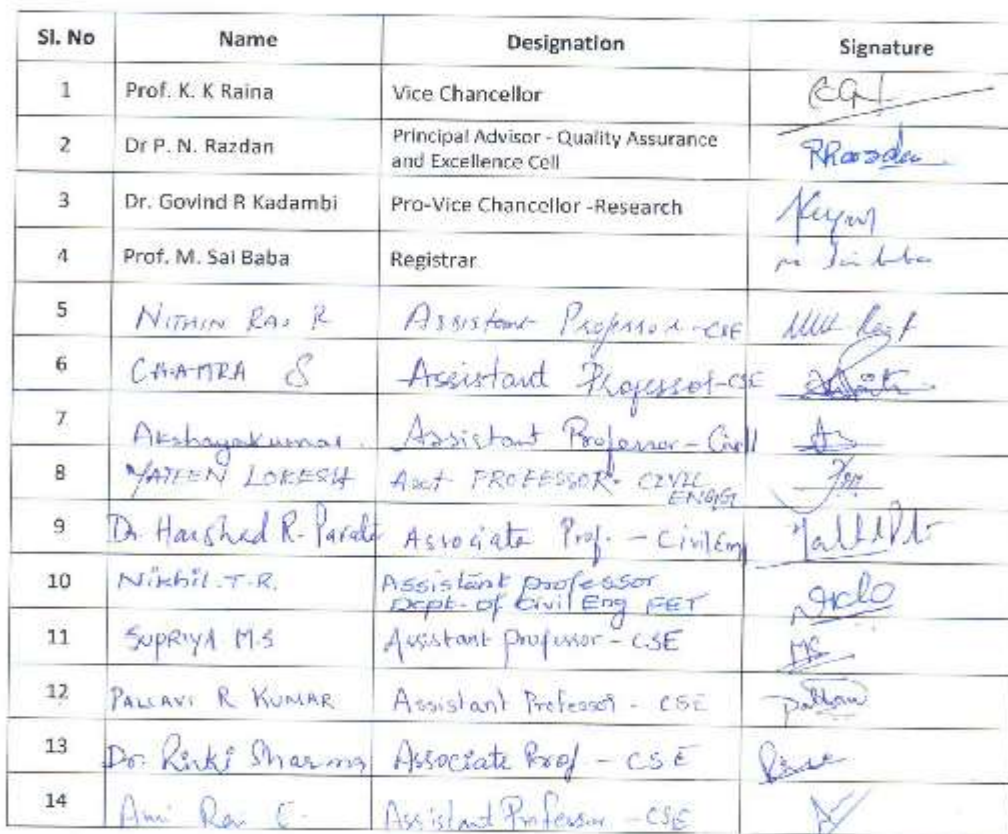 Sl. No Name Designation Signature
1 Prof. K. K Raina Vice Chancellor
2 Dr P. N. Razdan Principal Advisor - Quality Assurance
and Excellence Cell
3 Dr. Govind R Kadambi Pro-Vice Chancellor -Research
4 Prof. M. Sai Baba Registrar
5 NITHIN RAJ R Assistant Professor - CSE
6 CHAMRA S Assistant Professor-CSE
7 Akshayakumar. Assistant Professor - Civil
8 YATEEN LOKESH Asst PROFESSOR - CIVIL
ENGG
9 Dr. Harshad R. Parate Associate Prof. - Civil Eng
10 Nikhil.T.R. Assistant professor
Dept. of Civil Eng FET
11 SUPRIYA M.S Assistant Professor - CSE
12 PALLAVI R KUMAR Assistant Professor - CSE
13 Dr. Rinki Sharma Associate Prof - CSE
14 Ami Rai E. Assistant Professor - CSE